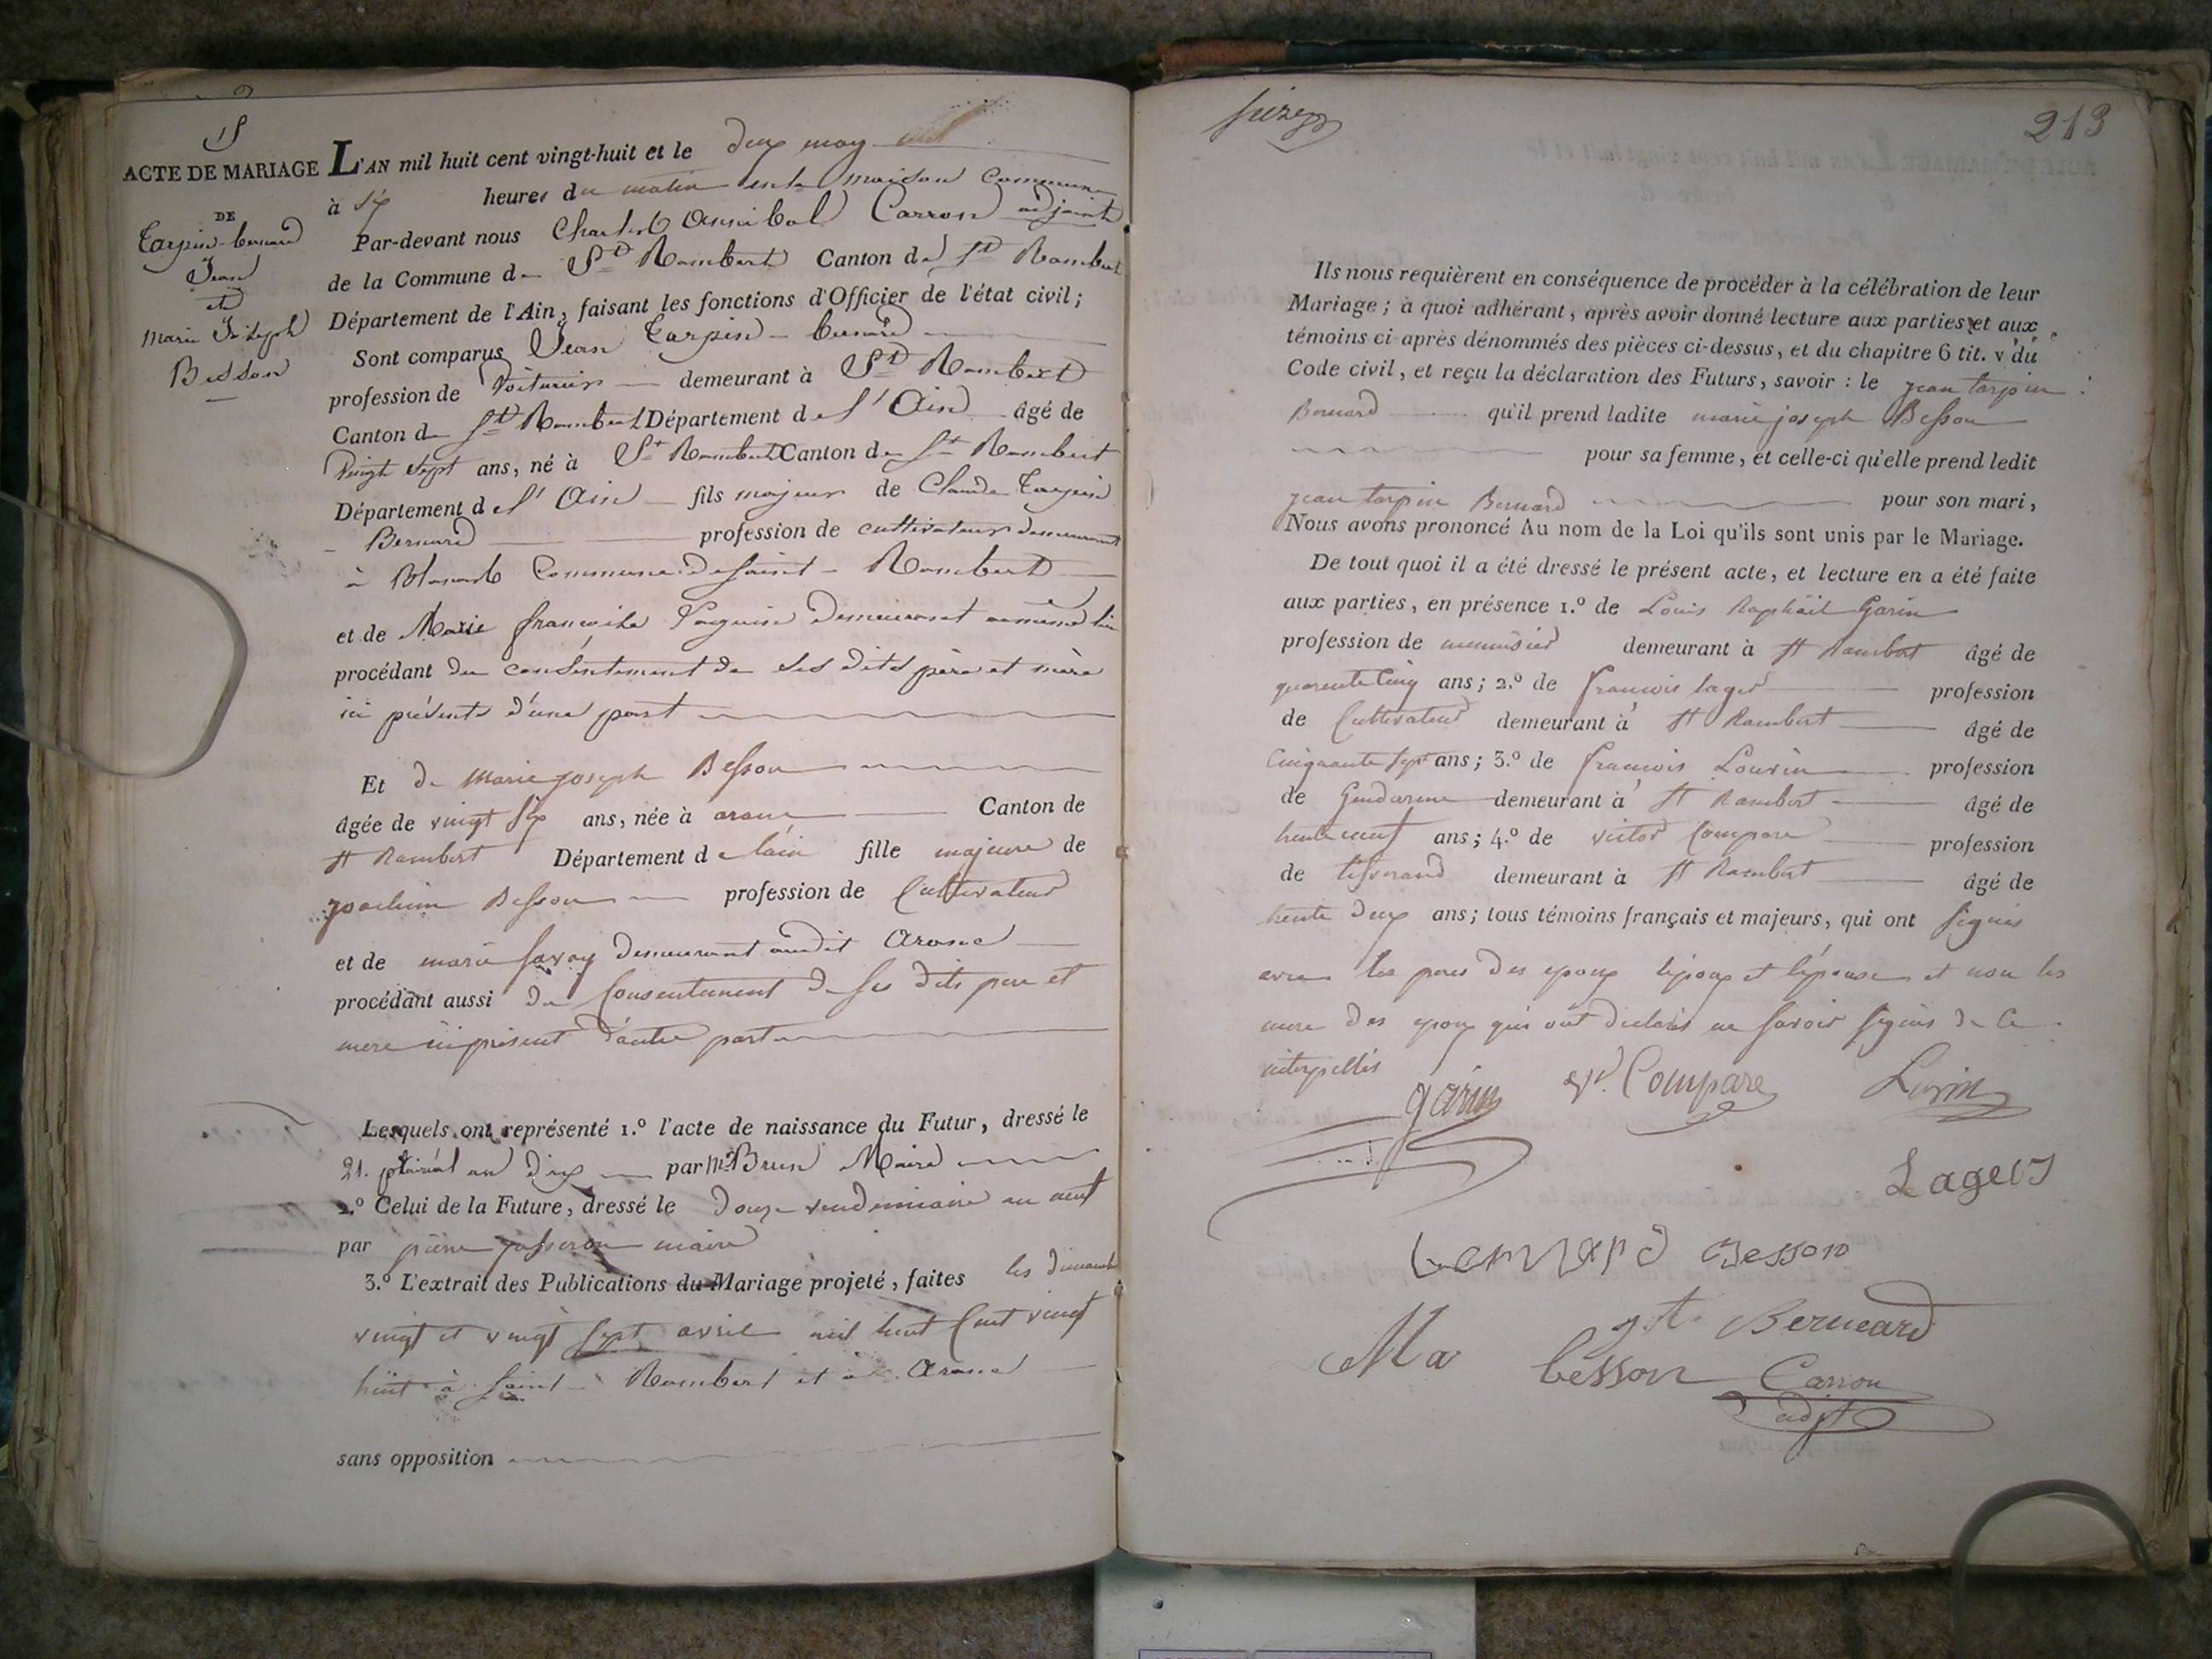 15
ACTE DE MARIAGE
DE
Tarpin-bernard
Jean
et
Marie Joseph
Besson
L'AN mil huit cent vingt-huit et le deux may
à six heures du matin en la maison Commune
Par-devant nous Charles Annibal Carron adjoint
de la Commune de St Rambert Canton de St Rambert
Département de l'Ain, faisant les fonctions d'Officier de l'état civil;
Sont comparus Jean Tarpin-bernard
profession de Voiturier demeurant à St Rambert
Canton de St Rambert Département de l'Ain âgé de
Vingt Sept ans, né à St Rambert Canton de St Rambert
Département de l'Ain fils majeur de Claude Tarpin
Bernard profession de cultivateur demeurant
à Blanas Commune de Saint-Rambert
et de Marie françoise demeurant au même lieu
procédant du consentement de ses dits père et mère
ici présents d'une part
Et de Marie joseph Besson
âgée de vingt six ans, née à aranc Canton de
St Rambert Département de lain fille majeure de
joachim Besson profession de Cultivateur
et de marie Savoy demeurant audit Aranc
procédant aussi du Consentement de ses dits pere et
mere ici présent d'autre part
Lesquels ont représenté 1.º l'acte de naissance du Futur, dressé le
21. plairial an dix par Mr Brun Maire
2.º Celui de la Future, dressé le douze vendemiaire an neuf
par pierre jasseron maire
3.º L'extrait des Publications du Mariage projeté, faites les dimanche
vingt et vingt sept avril mil huit Cent vingt
huit à Saint-Rambert et à Aranc
sans opposition
213
Ils nous requièrent en conséquence de procéder à la célébration de leur
Mariage; à quoi adhérant, après avoir donné lecture aux parties et aux
témoins ci-après dénommés des pièces ci-dessus, et du chapitre 6 tit. v du
Code civil, et reçu la déclaration des Futurs, savoir : le jean tarpin
Bernard qu'il prend ladite marie joseph Besson
pour sa femme, et celle-ci qu'elle prend ledit
jean tarpin Bernard pour son mari,
Nous avons prononcé Au nom de la Loi qu'ils sont unis par le Mariage.
De tout quoi il a été dressé le présent acte, et lecture en a été faite
aux parties, en présence 1.º de Louis Raphäil Garin
profession de menuisier demeurant à St Rambert âgé de
quarente Cinq ans; 2.º de francois lager profession
de Cultivateur demeurant à St Rambert âgé de
Cinquante sept ans; 3.º de francois Louvrin profession
de Gendarme demeurant à St Rambert âgé de
trente neuf ans; 4.º de victor Compare profession
de tisserand demeurant à St Rambert âgé de
trente deux ans; tous témoins français et majeurs, qui ont signés
avec les peres des epoux lepoux et lépouse et non les
mere des epoux qui ont declarés ne savoir signés de Ce
interpellés
garin Vr. Compare Lurin
Lagers
bernard Besson
jt Berneard
Ma besson Carron
adjt